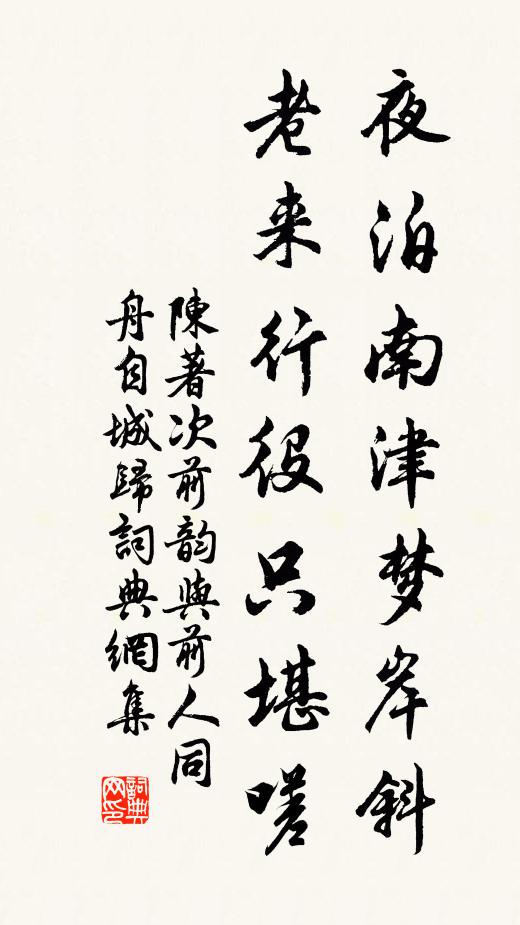 夜泊南津梦岸斜
老来行役只堪嗟
陳著次前韵與前人同
舟自城歸詞典網集
詞典
网印